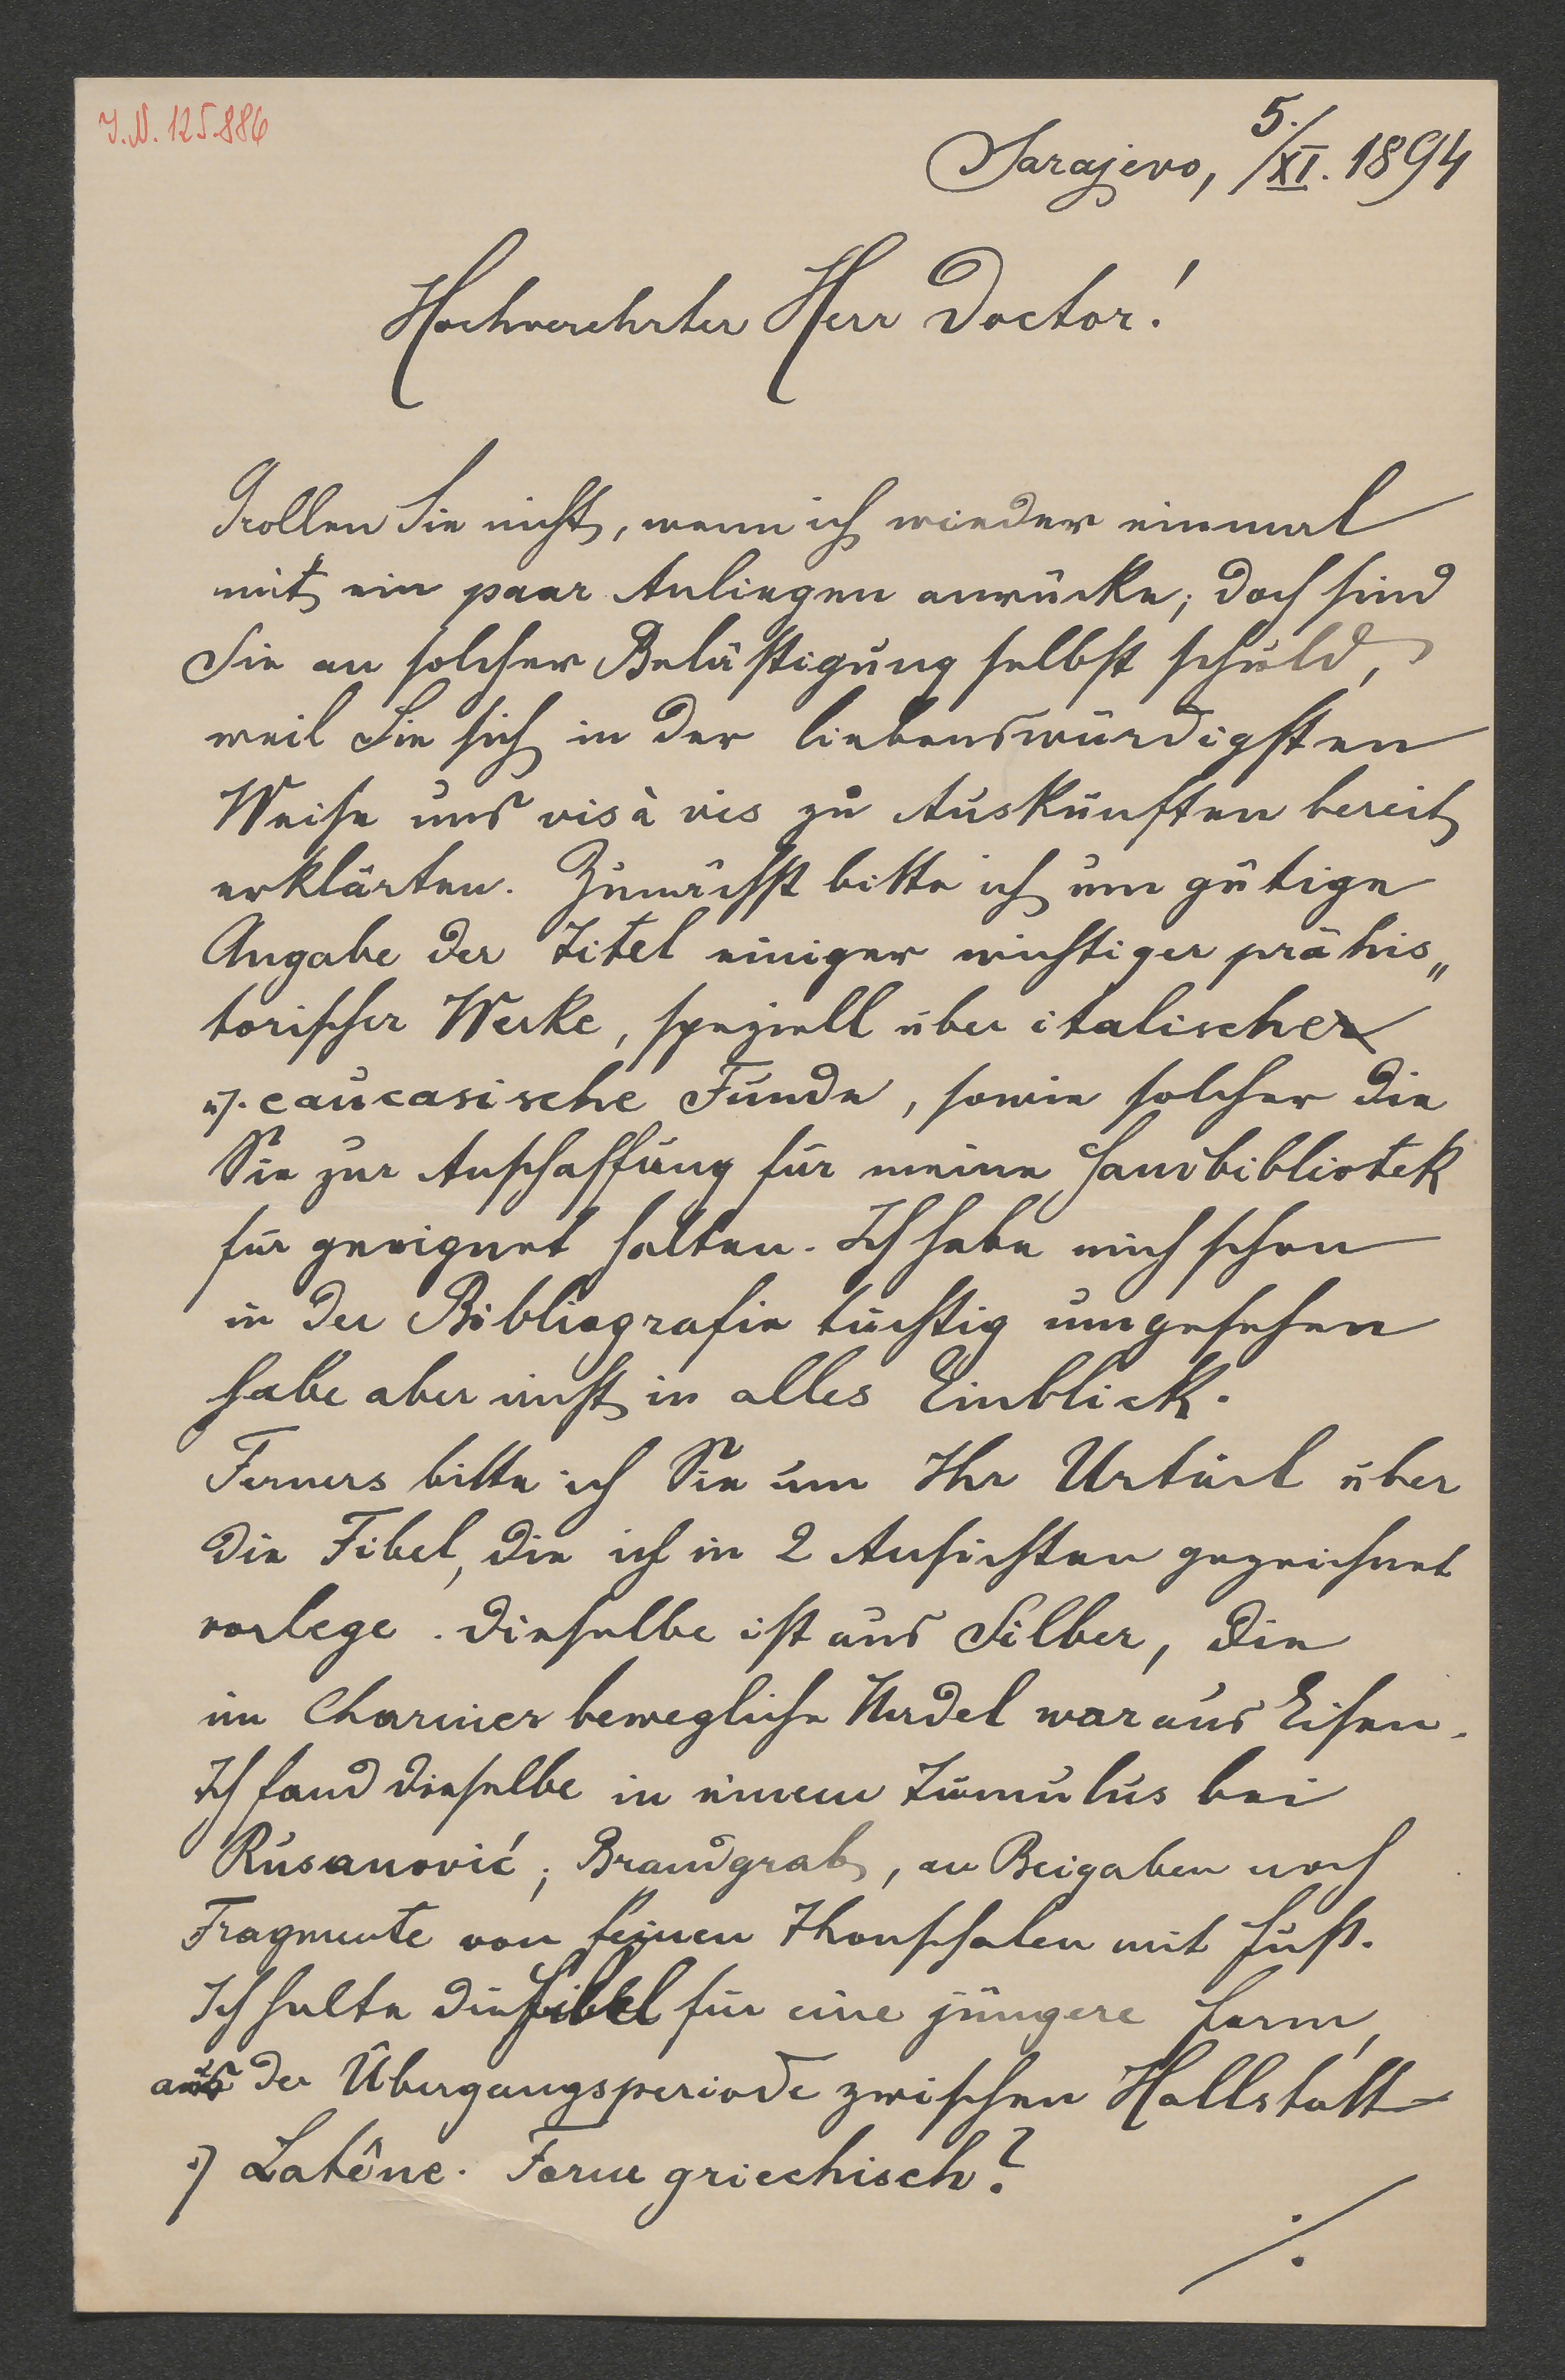 I.N. 125.886
Sarajevo, 5./XI. 1894
Hochverehrter Herr Doctor!
Grollen Sie nicht, wenn ich wieder einmal
mit ein paar Anliegen anrücke; doch sind
Sie an solcher Belästigung selbst schuld,
weil Sie sich in der liebenswürdigsten
Weise uns vis à vis zu Auskünften bereit
erklärten. Zunächst bitte ich um gütige
Angabe der Titel einiger wichtiger prähis„
torischer Werke, speziell über italische
u. caucasische Funde, sowie solcher die
Sie zur Anschaffung für meine Handbibliotek
für geeignet halten. Ich habe mich schon
in der Bibliografie tüchtig umgesehen
habe aber nicht in alles Einblick.
Ferners bitte ich Sie um Ihr Urteil über
die Fibel, die ich in 2 Ansichten gezeichnet
vorlege. Dieselbe ist aus Silber, die
im Charnier bewegliche Nadel war aus Eisen.
Ich fand dieselbe in einem Tumulus bei
Rusanović; Brandgrab, an Beigaben noch
Fragmente von feinen Thonschalen mit Fuß.
Ich halte die Fibel für eine jüngere Form,
aus der Übergangsperiode zwischen Hallstatt
u. Latêne. Form griechisch?
./.